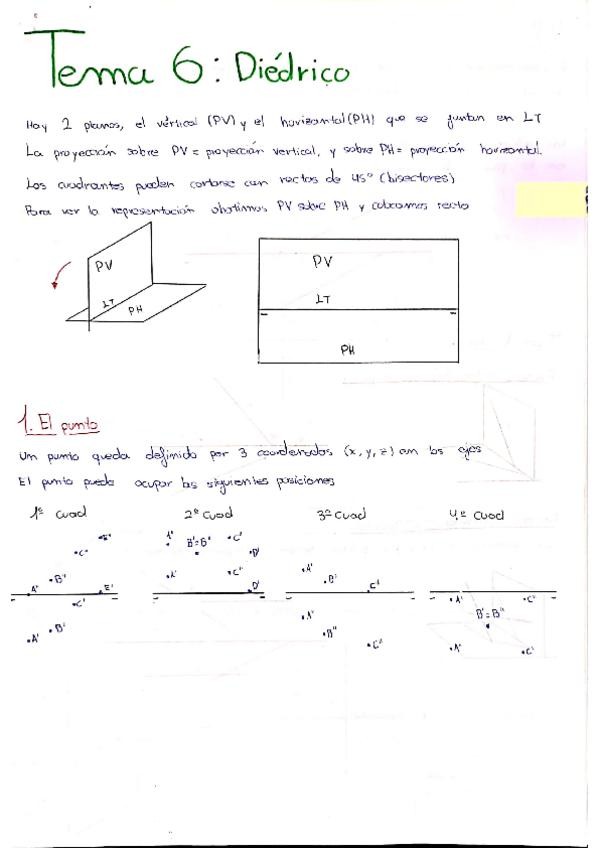 Tema 6: Diédrico
Hay 2 planos, el vértical (PV) y el horizontal (PH) que se juntan en LT
La proyección sobre PV = proyección vertical, y sobre PH = proyección horizontal.
Los cuadrantes pueden cortarse con rectas de 45° (bisectores)
Para ver la representación abatimos PV sobre PH y colocamos recto
PV
LT
PH
PV
LT
PH
1. El punto
Un punto queda definido por 3 coordenadas (x, y, z) con los ejes
El punto puede ocupar las siguientes posiciones
1º Cuad 2º Cuad 3º Cuad 4º Cuad
E"
C"
B"
A"
E'
C'
B'
A'
B'=B"
C'
D"
A'
C"
D'
A'
B'
C'
A"
B"
C"
A"
C"
B'=B"
A'
C'